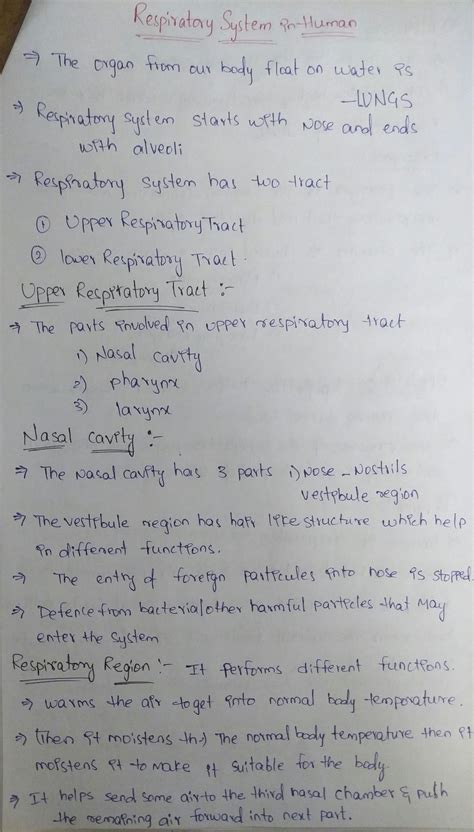 Respiratory System in Human
⇒ The organ from our body float on water is
- LUNGS
⇒ Respiratory system starts with Nose and ends
with alveoli
⇒ Respiratory system has two tract
① Upper Respiratory Tract
② lower Respiratory Tract.
Upper Respiratory Tract :-
⇒ The parts involved in upper respiratory tract
1) Nasal cavity
2) pharynx
3) larynx
Nasal cavity :-
⇒ The Nasal cavity has 3 parts i) Nose - Nostrils
vestibule region
⇒ The vestibule region has hair like structure which help
in different functions.
⇒ The entry of foreign particules into nose is stopped.
⇒ Defence from bacteria/other harmful particles that May
enter the system
Respiratory Region :- It performs different functions.
⇒ warms the air to get into normal body temporature.
⇒ (Then it moistens the) The normal body temperature then it
moistens it to make it suitable for the body.
⇒ It helps send some air to the third nasal chamber & push
the remaining air forward into next part.